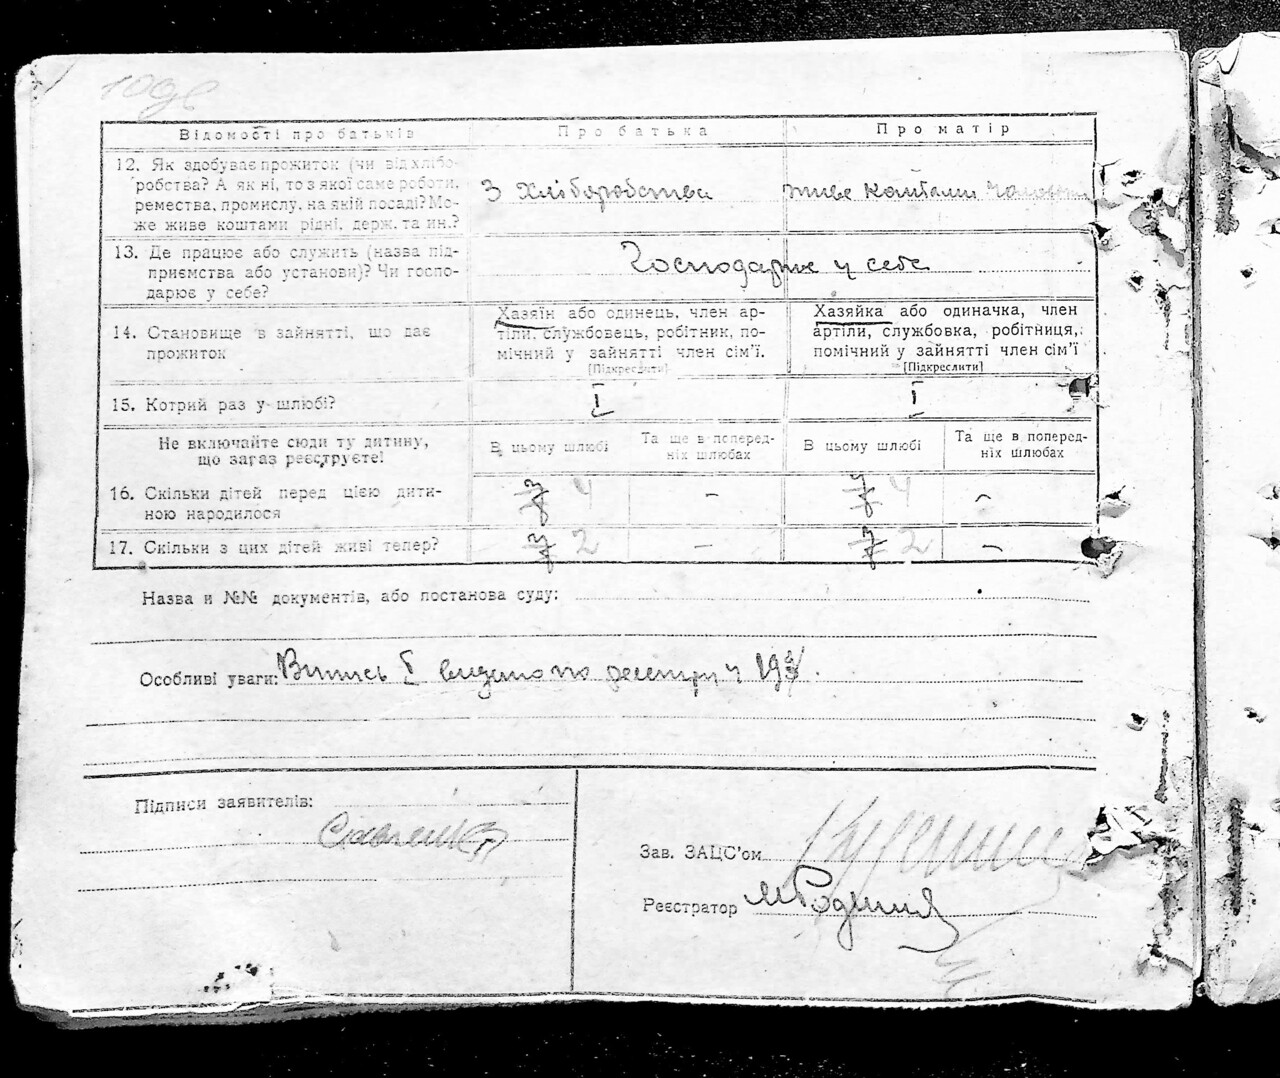 Відомості про батьків Про батька Про матір
12. Як здобуває прожиток (чи від хлібо-
робства? А як ні, то з якої саме роботи,
ремества, промислу, на якій посаді? Мо-
же живе коштами рідні, держ. та ин.?
З хліборобства
живе коштами
13. Де працює або служить (назва під-
приємства або установи)? Чи госпо-
дарює у себе?
Господарює у себе
14. Становище в зайнятті, що дає
прожиток
Хазяїн або одинець, член ар-
тіли, службовець, робітник, по-
мічний у зайнятті член сім'ї.
[Підкреслити]
Хазяйка або одиначка, член
артіли, службовка, робітниця,
помічний у зайнятті член сім'ї
[Підкреслити]
15. Котрий раз у шлюбі? I I
Не включайте сюди ту дитину,
що загаз реєструєте!
В цьому шлюбі
Та ще в поперед-
ніх шлюбах
В цьому шлюбі
Та ще в поперед-
ніх шлюбах
16. Скільки дітей перед цією дити-
ною народилося
4 – 4 –
17. Скільки з цих дітей живі тепер? 2 – 2 –
Назва и №№ документів, або постанова суду:
Особливі уваги: Випись I видано по реєстру ч
Підписи заявителів:
Зав. ЗАЦС'ом
Реєстратор